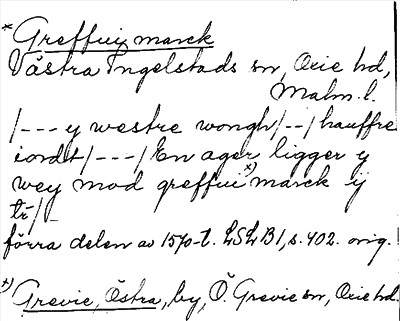 * Greffuij marck
Västra Ingelstads sn, Oxie hd,
Malm. l.
/--- y westre wongh/--/hauffre
iordt/---/En ager ligger y
wey mod greffui x) marck ij
tr/-
förra delen av 1570-t. LSLB1, s. 402. orig.
x) Grevie, Östra, by, Ö. Grevie sn, Oxie hd.